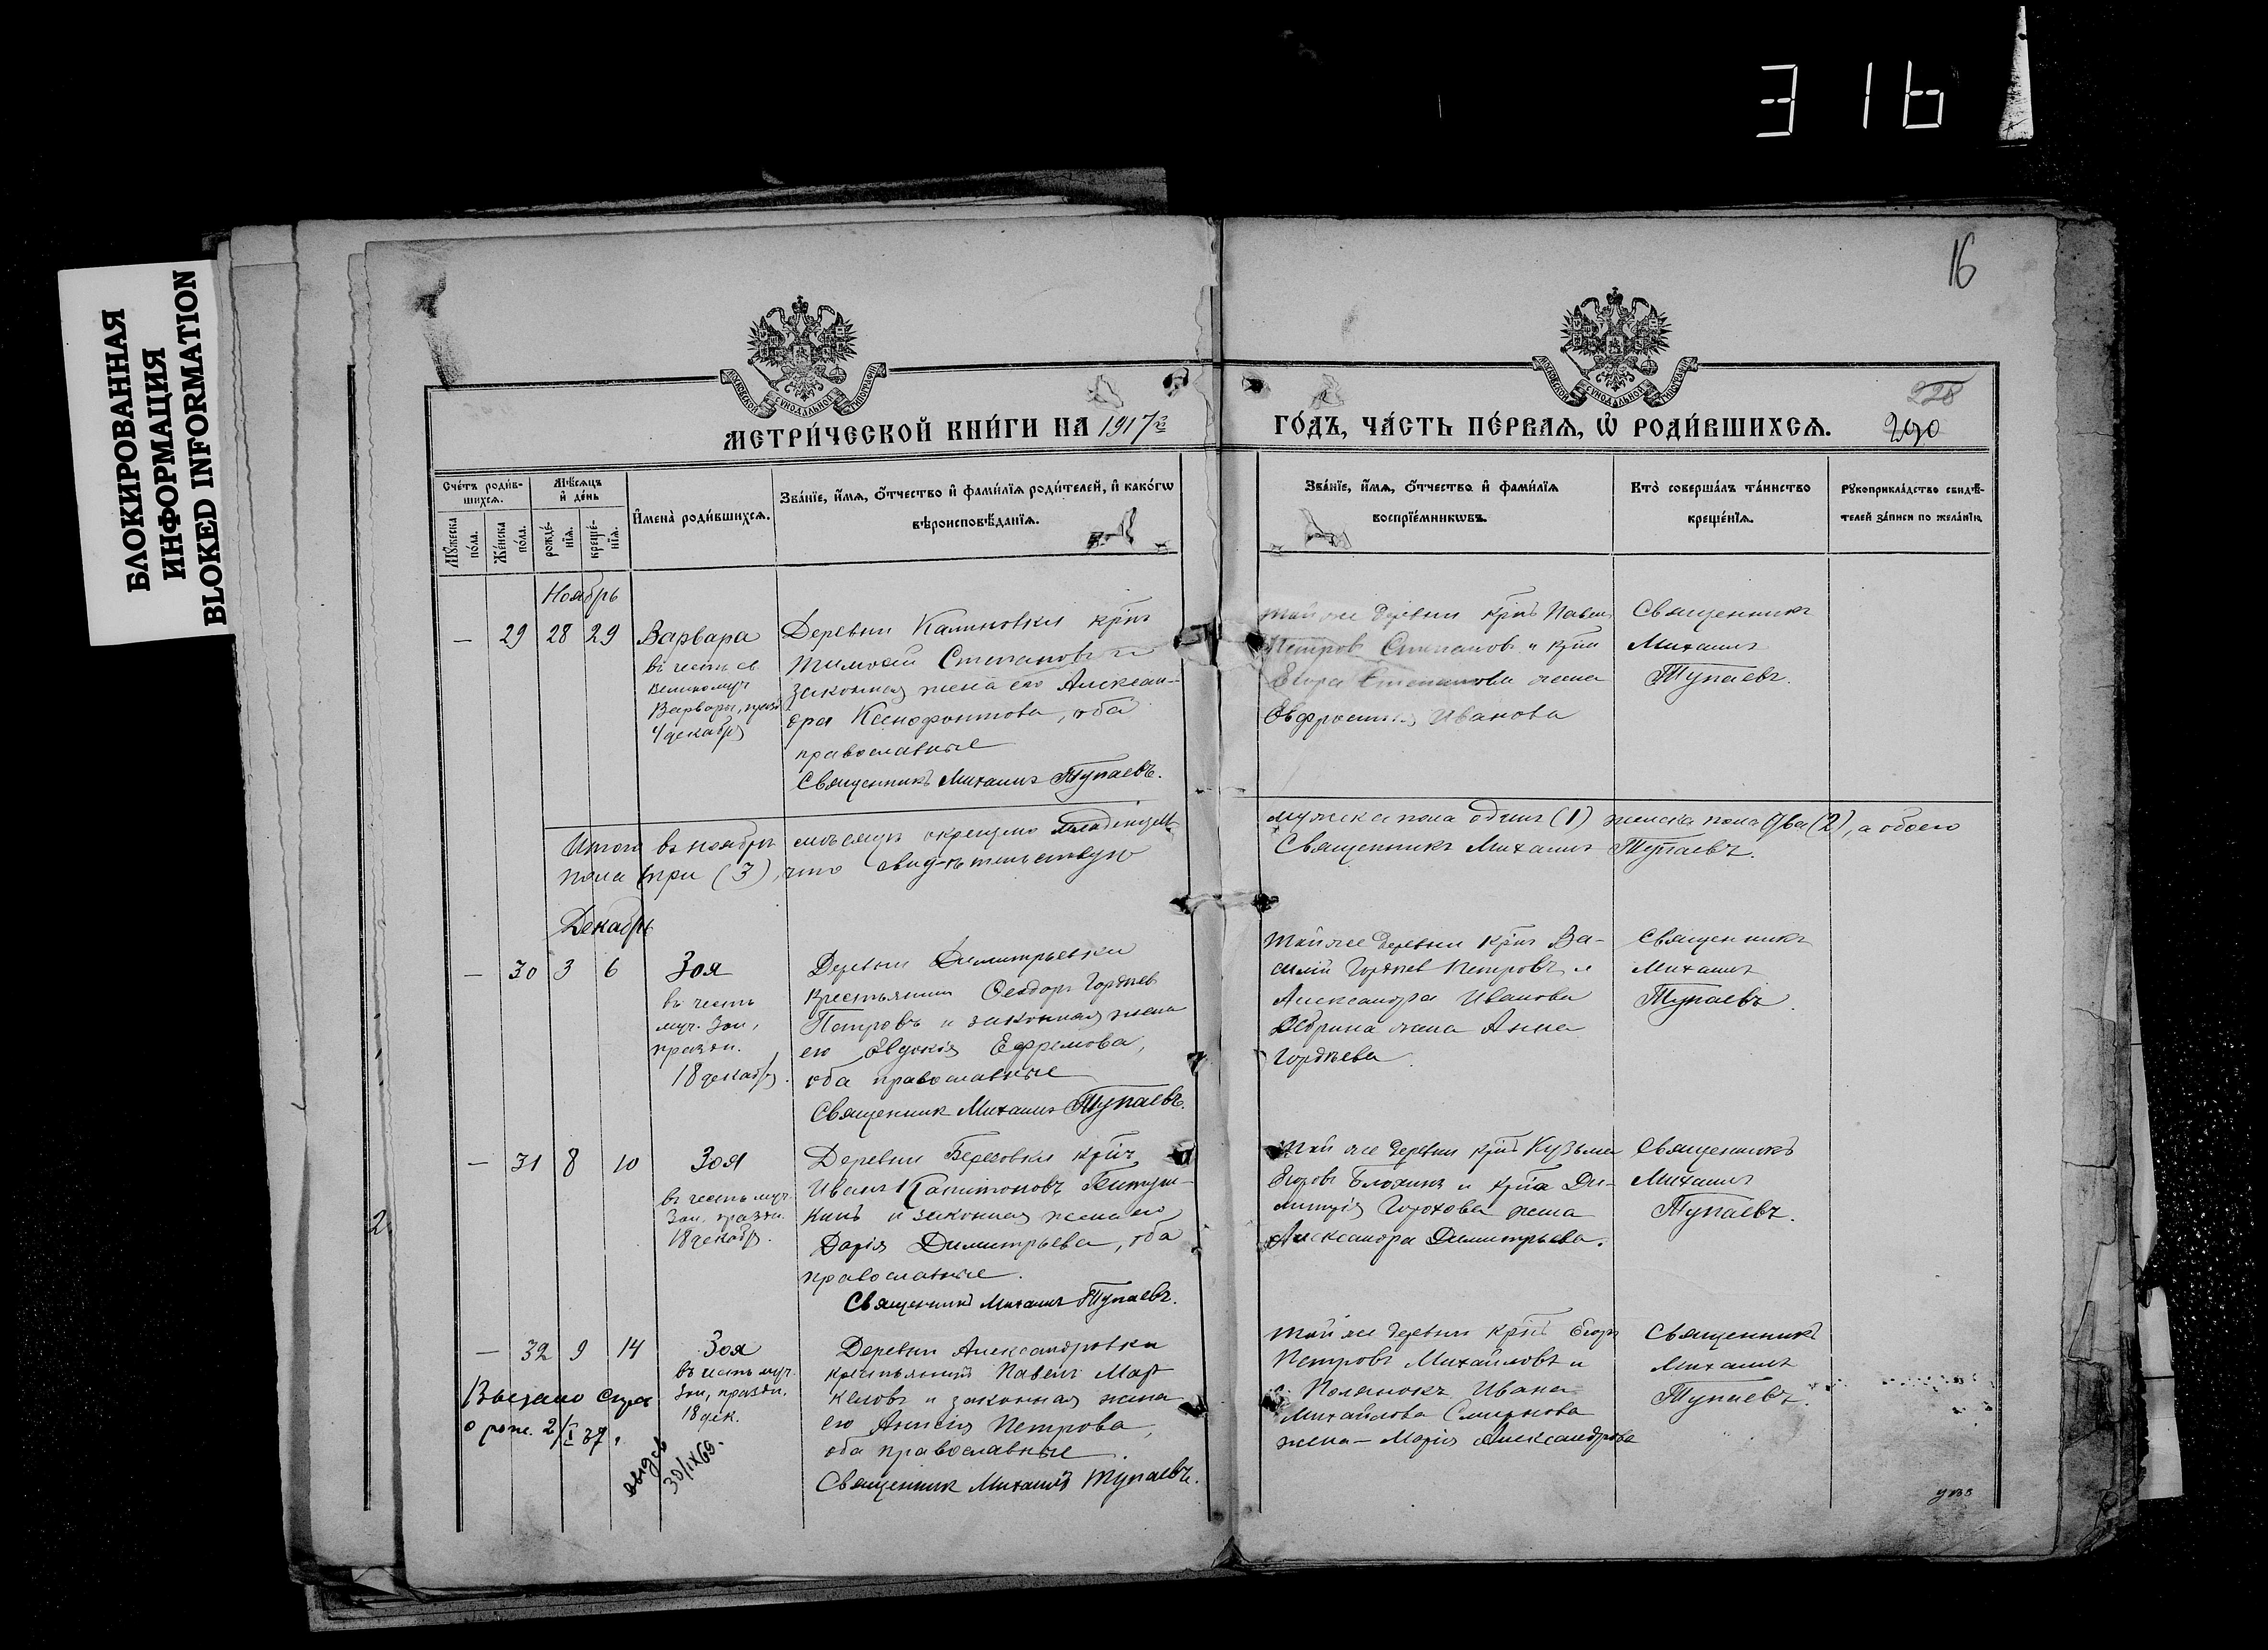 316
БЛОКИРОВАННАЯ
ИНФОРМАЦИЯ
BLOKED INFORMATION
16
МЕТРИ́ЧЕСКОЙ КНИ́ГИ НА 1917 го́
ГО́ДЪ, ЧА́СТЬ ПЕ́РВАѦ, Ѽ РОДИ́ВШИХСѦ.
290
Сче́тъ роди́в-
шихсѧ.
Мѣ́сѧцъ
и҆ де́нь
Мꙋ́жеска
по́ла.
Же́нска
по́ла.
рожде́-
нїѧ.
креще́-
нїѧ.
И҆мена̀ роди́вшихсѧ.
Зва́нїе, и҆́мѧ, ѻ҆́тчество и҆ фами́лїѧ роди́телей, и҆ како́гѡ
вѣроисповѣ́данїѧ.
Зва́нїе, и҆́мѧ, ѻ҆́тчество и҆ фами́лїѧ
воспрїе́мникѡвъ.
Кто̀ соверша́лъ та́инство
креще́нїѧ.
Рꙋкоприкла́дство свидѣ́-
телей за́писи по жела́нїю.
Ноябрь
— 29 28 29
Варвара
въ честь св.
Великомуч
Варвары, празд
4 декабря
Деревни Калиновки кр-нъ
Тимофей Степановъ и
законная жена его Алексан-
дра Ксенофонтова, оба
православные
Священникъ Михаилъ Тупаевъ.
той же деревни кр-нъ Павел
Петров Степанов и кр-на
Егора Степанова жена
Евфросинія Иванова
Священникъ
Михаилъ
Тупаевъ.
Итого въ ноябрѣ мѣсяцѣ окрещено младенцевъ
мужска пола одинъ (1) женска пола два (2), а обоего
пола три (3), что свидѣтельствую
Священникъ Михаилъ Тупаевъ.
Декабрь
— 30 3 6
Зоя
въ честь
муч. Зои,
празdн.
18 декабря.
Деревни Димитрьевки
крестьянин Феодоръ Гордѣев
Петровъ и законная жена
его Евдокія Ефремова,
оба православные
Священник Михаилъ Тупаевъ.
Той же деревни кр-нъ Ва-
силій Гордѣев Петровъ и
Александра Иванова
жена Анна
Гордѣева
Священникъ
Михаилъ
Тупаевъ.
— 31 8 10
Зоя
въ честь муч.
Зои, праздн.
18 декабр.
Деревни Березовки кр-нъ
Иванъ Капитоновъ
кинъ и законная жена его
Дарія Димитрьева, оба
православные.
Священникъ Михаилъ Тупаевъ.
Той же деревни кр-нъ Кузьма
Егоровъ Блохинъ и кр-на Ди-
митрія Горохова жена
Александра Димитрьева.
Священникъ
Михаилъ
Тупаевъ.
— 32 9 14
Зоя
въ честь муч.
Зои, праздн.
18 дек.
Деревни Александровки
крестьянинъ Павелъ Мар
келовъ и законная жена
его Анисія Петрова,
оба православные.
Священник Михаилъ Тупаевъ.
Той же деревни кр-нъ Егоръ
Петровъ Михайловъ и
Полянокъ Ивана
Михайлова Смирнова
жена — Марія Александрова
Священникъ
Михаилъ
Тупаевъ.
о рож. 2/I 37 г.
30/IX 60.
2